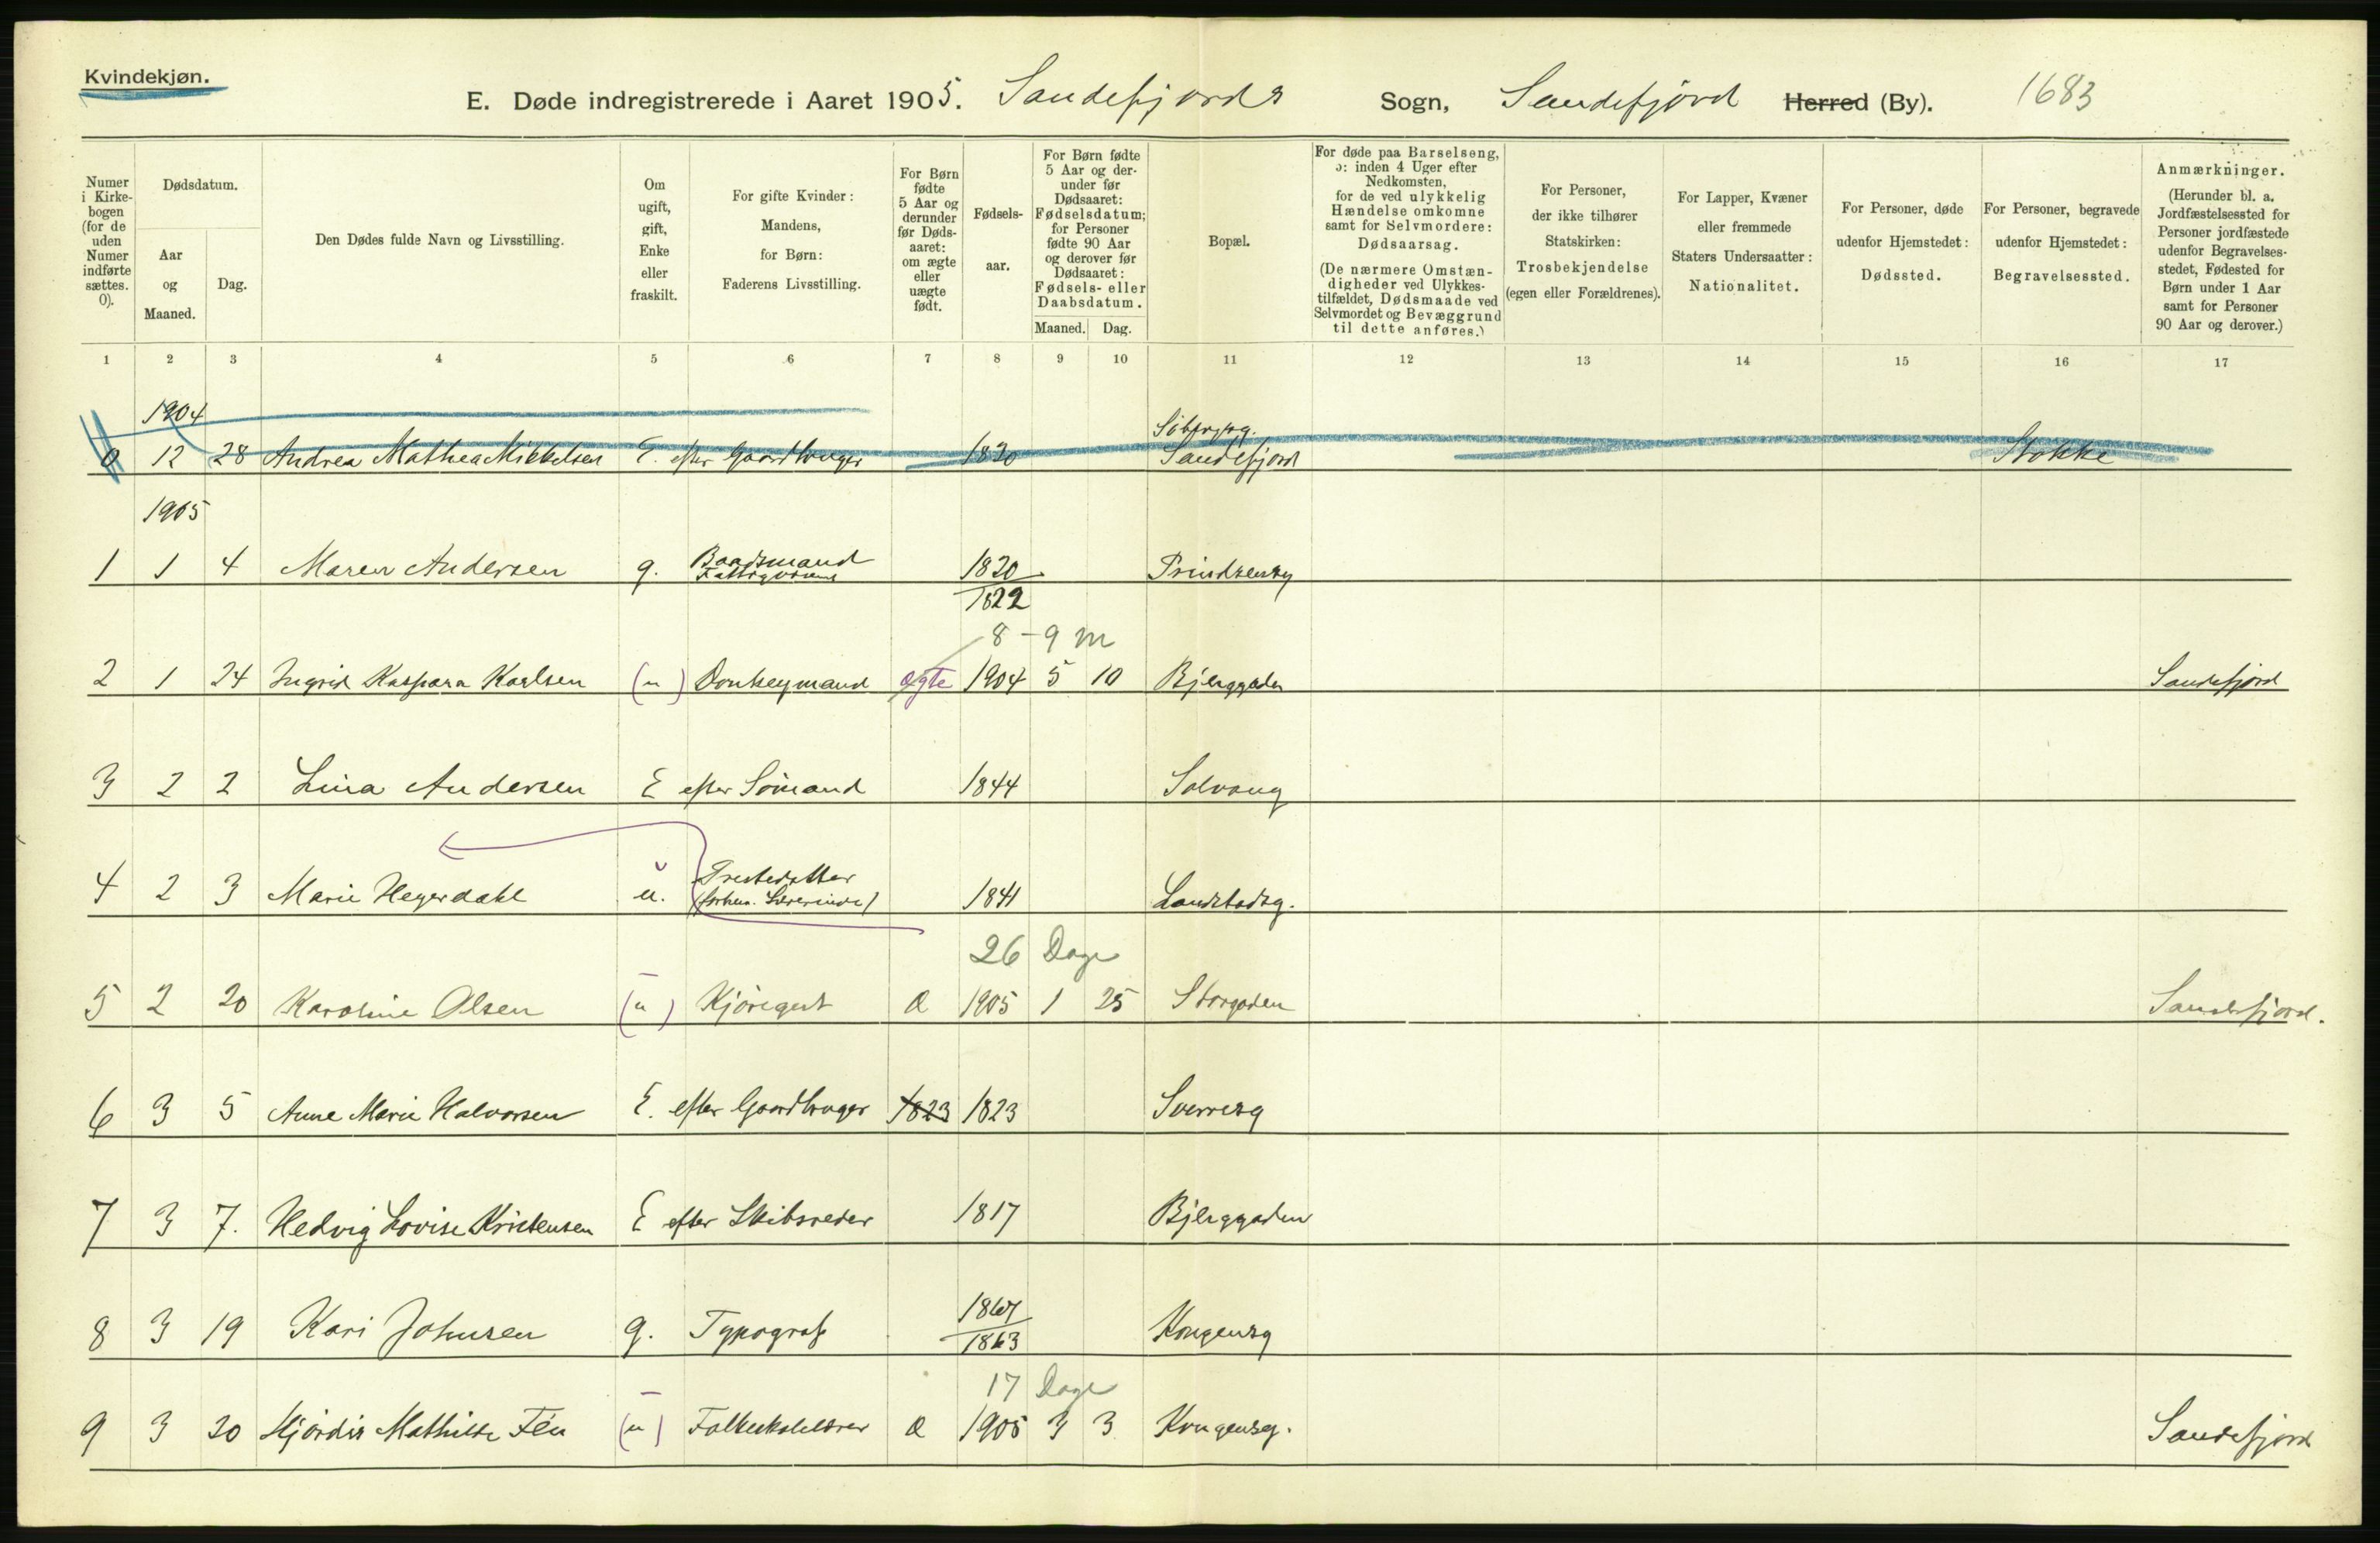 Kvindekjøn.
E. Døde indregistrerede i Aaret 1905. Sandefjords Sogn, Sandefjord Herred (By). 1683
Numer i Kirke-bogen (for de uden Numer indførte sættes. 0).
Dødsdatum.
Aar og Maaned.
Dag.
Den Dødes fulde Navn og Livsstilling.
Om ugift, gift, Enke eller fraskilt.
For gifte Kvinder: Mandens, for Børn: Faderens Livsstilling.
For Børn fødte 5 Aar og derunder før Døds-aaret: om ægte eller uægte født.
Fødsels-aar.
For Børn fødte 5 Aar og der-under før Dødsaaret: Fødselsdatum; for Personer fødte 90 Aar og derover før Dødsaaret: Fødsels- eller Daabsdatum.
Maaned. Dag.
Bopæl.
For døde paa Barselseng, ɔ: inden 4 Uger efter Nedkomsten, for de ved ulykkelig Hændelse omkomne samt for Selvmordere: Dødsaarsag.
(De nærmere Omstæn-digheder ved Ulykkes-tilfældet, Dødsmaade ved Selvmordet og Bevæggrund til dette anføres.)
For Personer, der ikke tilhører Statskirken: Trosbekjendelse (egen eller Forældrenes).
For Lapper, Kvæner eller fremmede Staters Undersaatter: Nationalitet.
For Personer, døde udenfor Hjemstedet: Dødssted.
For Personer, begravede udenfor Hjemstedet: Begravelsessted.
Anmærkninger.
(Herunder bl. a. Jordfæstelsessted for Personer jordfæstede udenfor Begravelses-stedet, Fødested for Børn under 1 Aar samt for Personer 90 Aar og derover.)
1 2 3 4 5 6 7 8 9 10 11 12 13 14 15 16 17
1904
0 12 28 Andrea Mathea Mikkelsen E. efter Gaardbruger 1820 Sandefjord Stokke
1905
1 1 4 Maren Andersen g. Baadsmand 1820 Prindsensg
1822
8-9 m
2 1 24 Ingrid Kaspara Karlsen (u) Donkeymand ægte 1904 5 10 Bjerggaden Sandefjord
3 2 2 Lina Andersen E efter Sömand 1844 Solvang
4 2 3 Marie Heyerdahl u. Prestedatter (forhen. Lærerinde) 1841 Landstadsg.
26 Dage
5 2 20 Karoline Olsen (u) Kjöregut Æ 1905 1 25 Storgaden Sandefjord.
6 3 5 Anne Marie Halvorsen E. efter Gaardbruger 1823 1823 Sverresg
7 3 7. Hedvig Lovise Kristensen E efter Skibsreder 1817 Bjerggaden
1867
8 3 19 Kari Johnsen g. Typograf 1863 Kongensg
17 Dage
9 3 20 Hjördis Mathilde Fén (u) Folkeskolelærer Æ 1905 3 3 Kongensg. Sandefjord